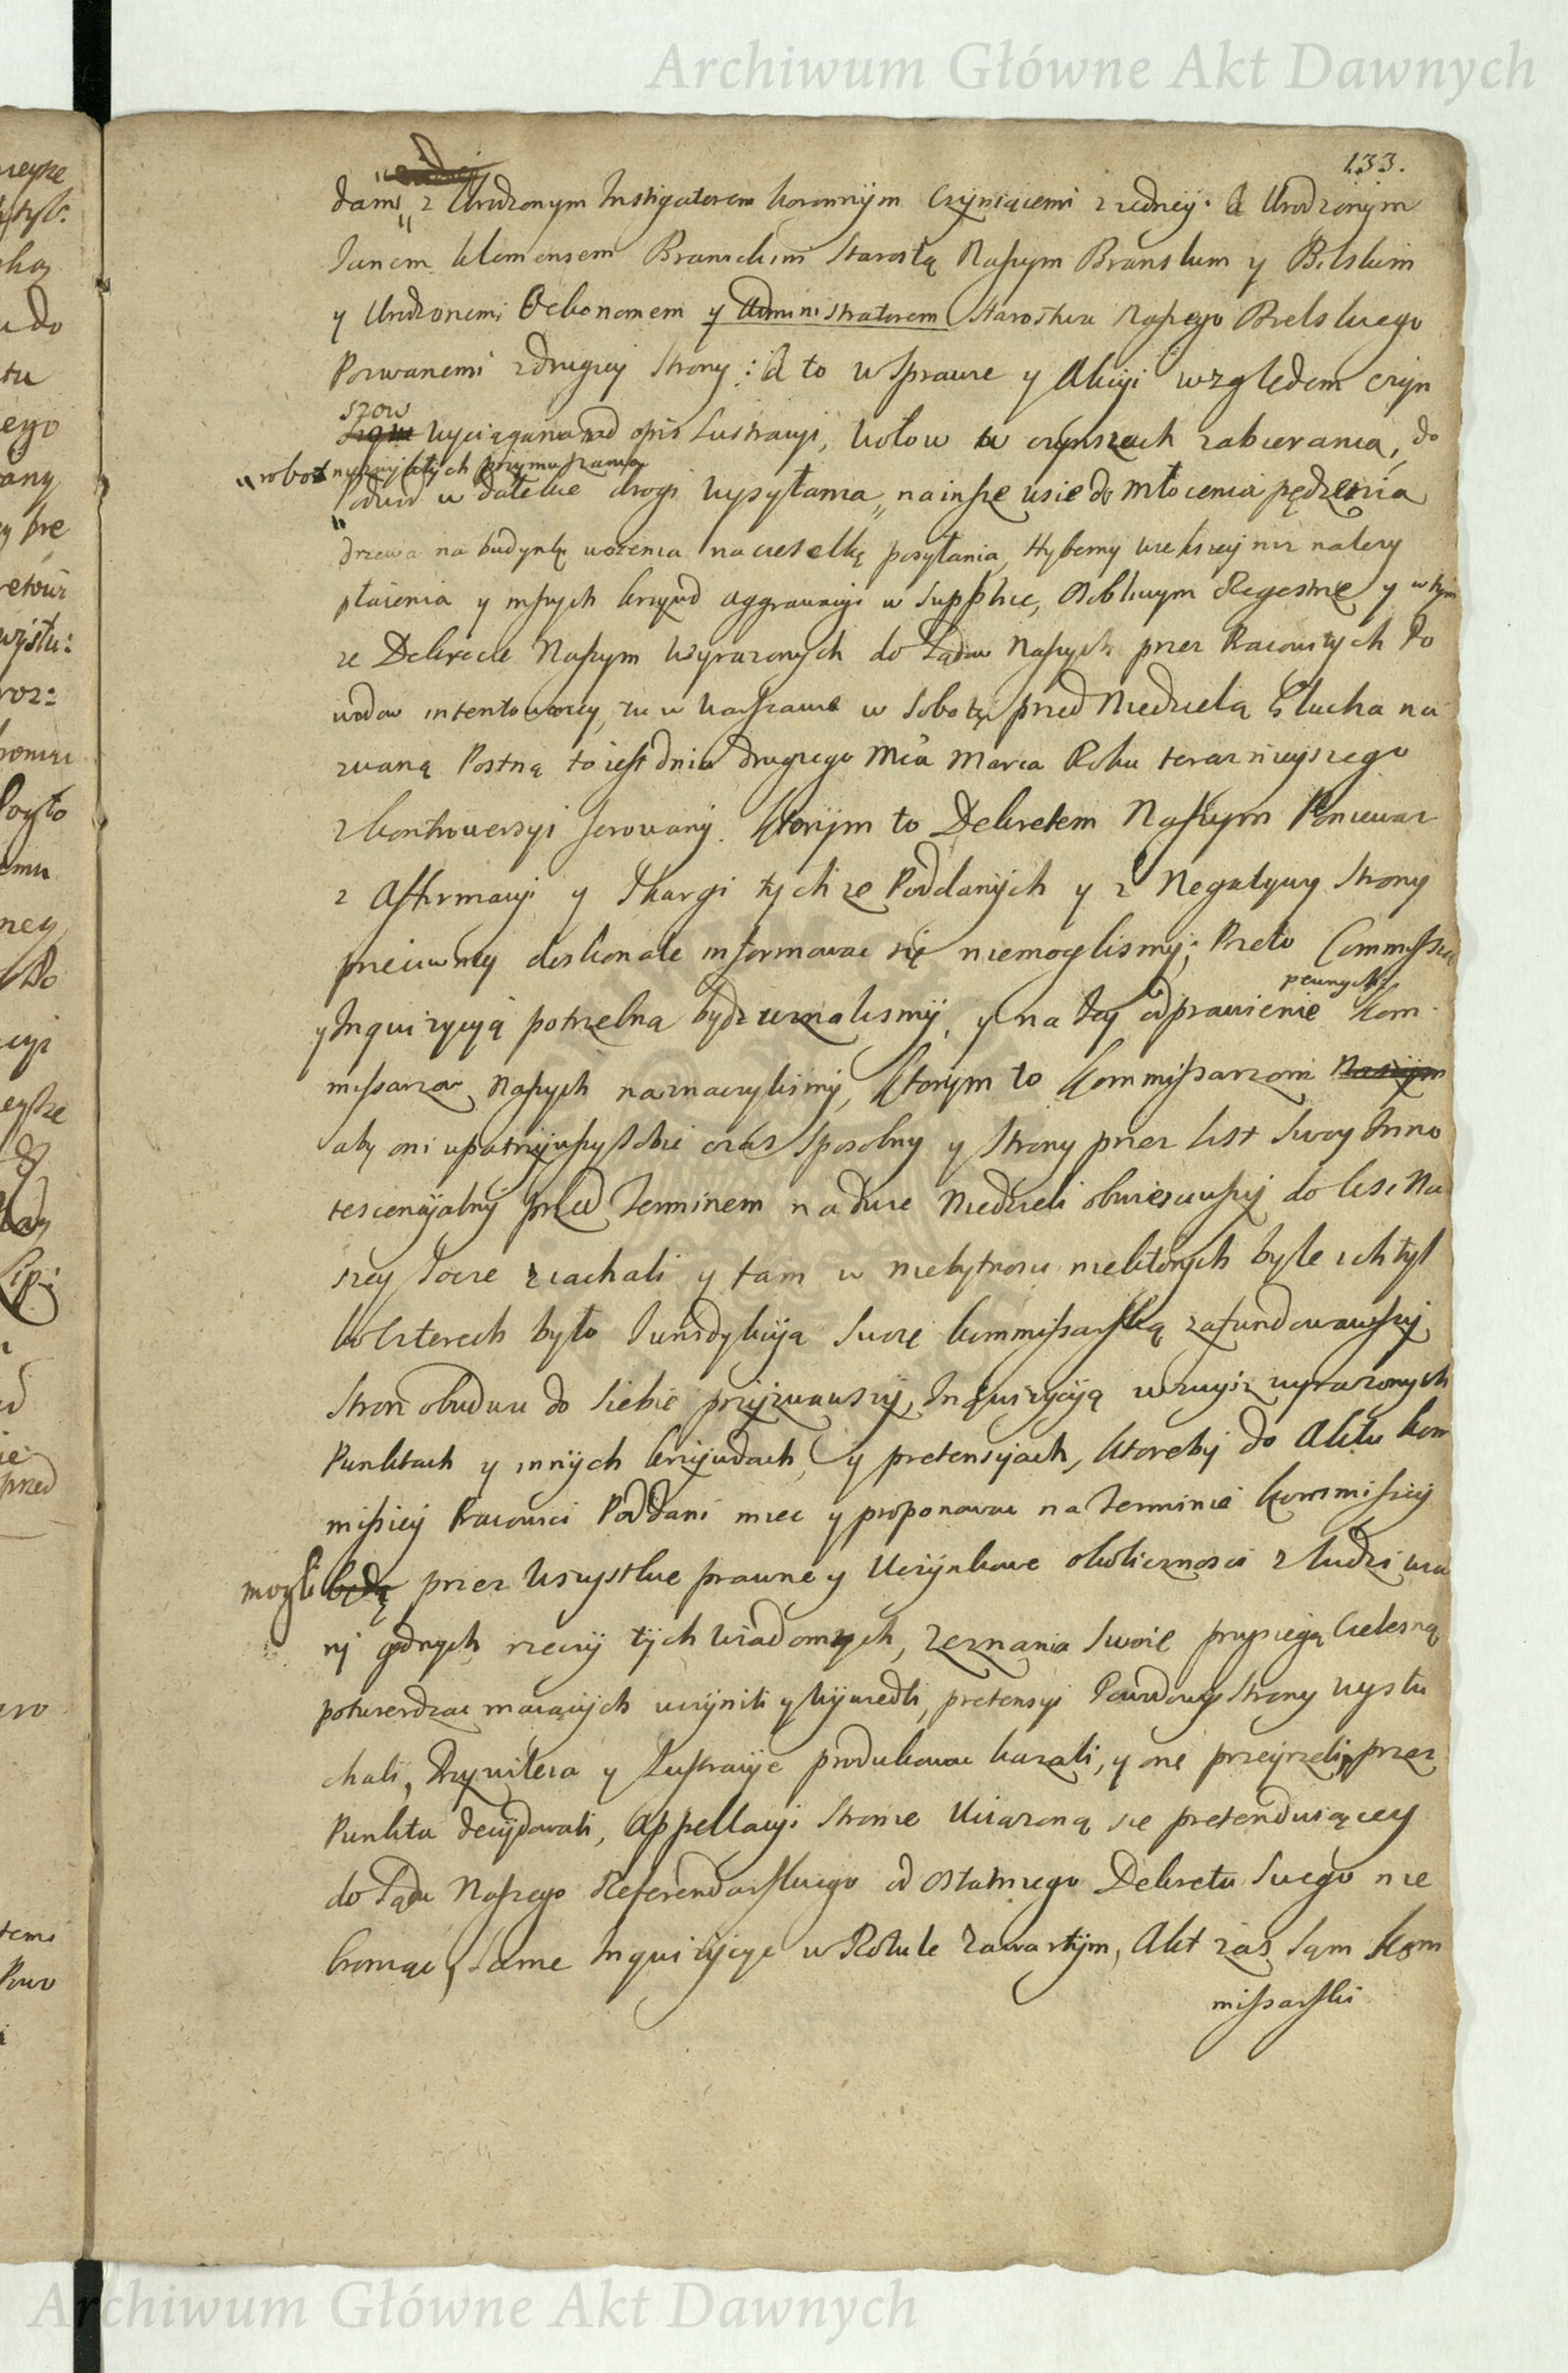 Archiwum Główne Akt Dawnych
133.
dami z Urodzonym Instigatorem koronnym Czyniącemi z iedney. A Urodzonym
Janem Klemensem Branickim Starostą Naszym Branskim y Bilskim
y Urodzonemi Oekonomem y Administratorem Starostwa Naszego Bielskiego
Pozwanemi z drugiey Strony: A to w Sprawie y Akcyi względem czyn
szow
wyciągania nad opis Lustracyi, wołow w czynszach zabierania, do
robot przymuszania
Podwod w dalekie drogi wysyłania, na insze wsie do młocenia pędzenia
drzewa na budynki wożenia na posyłania, Hyberny większey niz nalezy
płacenia y inszych krzywd aggrawacyi w Supplice, Osobliwym Regestrze y w tym
ze Dekrecie Naszym wyrazonych do Sądow Naszych przez Pracowitych Po
wodow intentowaney, tu w Warszawie w Sobotę przed Niedzielą Głucha na
zwaną Postną to iest dnia drugiego Mca Marca Roku teraznieyszego
z kontrowersyi ferowany. Ktorym to Dekretem Naszym Poniewaz
z Affirmacyi y Skargi tychze Poddanych y z Negatywy Strony
przeciwney doskonale informowac się niemoglismy; Przeto Commissią
pewnych
y Inquizycyą potrzebna bydz uznalismy, y na tey odprawienie Kom
missarzow Naszych naznaczylismy, Ktorym to Kommissarzom Naszym
aby oni upatrzywszy Sobie czas Sposobny y Strony przez List Swoy Inno
tescencyalny przed Terminem na dwie Niedzieli obwiesciwszy do wsi Na
szey Socze ziachali y tam w niebytnosci niektorych byle ich tyl
ko czterech było Jurisdykcyą Swoię kommissarską zafundowawszy
Stron obudwu do Siebie przyzwawszy, Inquizycyą wzwysz wyrazonych
Punktach y innych krzywdach, y pretensyach, ktoreby do Aktu Kom
missiey Pracowici Poddani miec y proponowac na Terminie kommissiey
mogli będą przez wszystkie prawne y Uczynkowe okolicznosci z ludzi wia
ry godnych rzeczy tych wiadomych, zeznania Swoie przysięgą Cielesną
potwierdzac maiących uczynili y wywiedli, pretensyi Powodowey Strony wysłu
chali, Przywileia y Lustracye produkowac kazali, y one przeyrzeli, przez
Punkta decydowali, Appellacyi Stronie Uciązoną się pretenduiącey
do Sądu Naszego Referendarskiego od ostatniego Dekretu Swego nie
broniąc, Same Inquizycye w Rotule zawartym, Akt zas Sąm Kom
missarski
Archiwum Główne Akt Dawnych